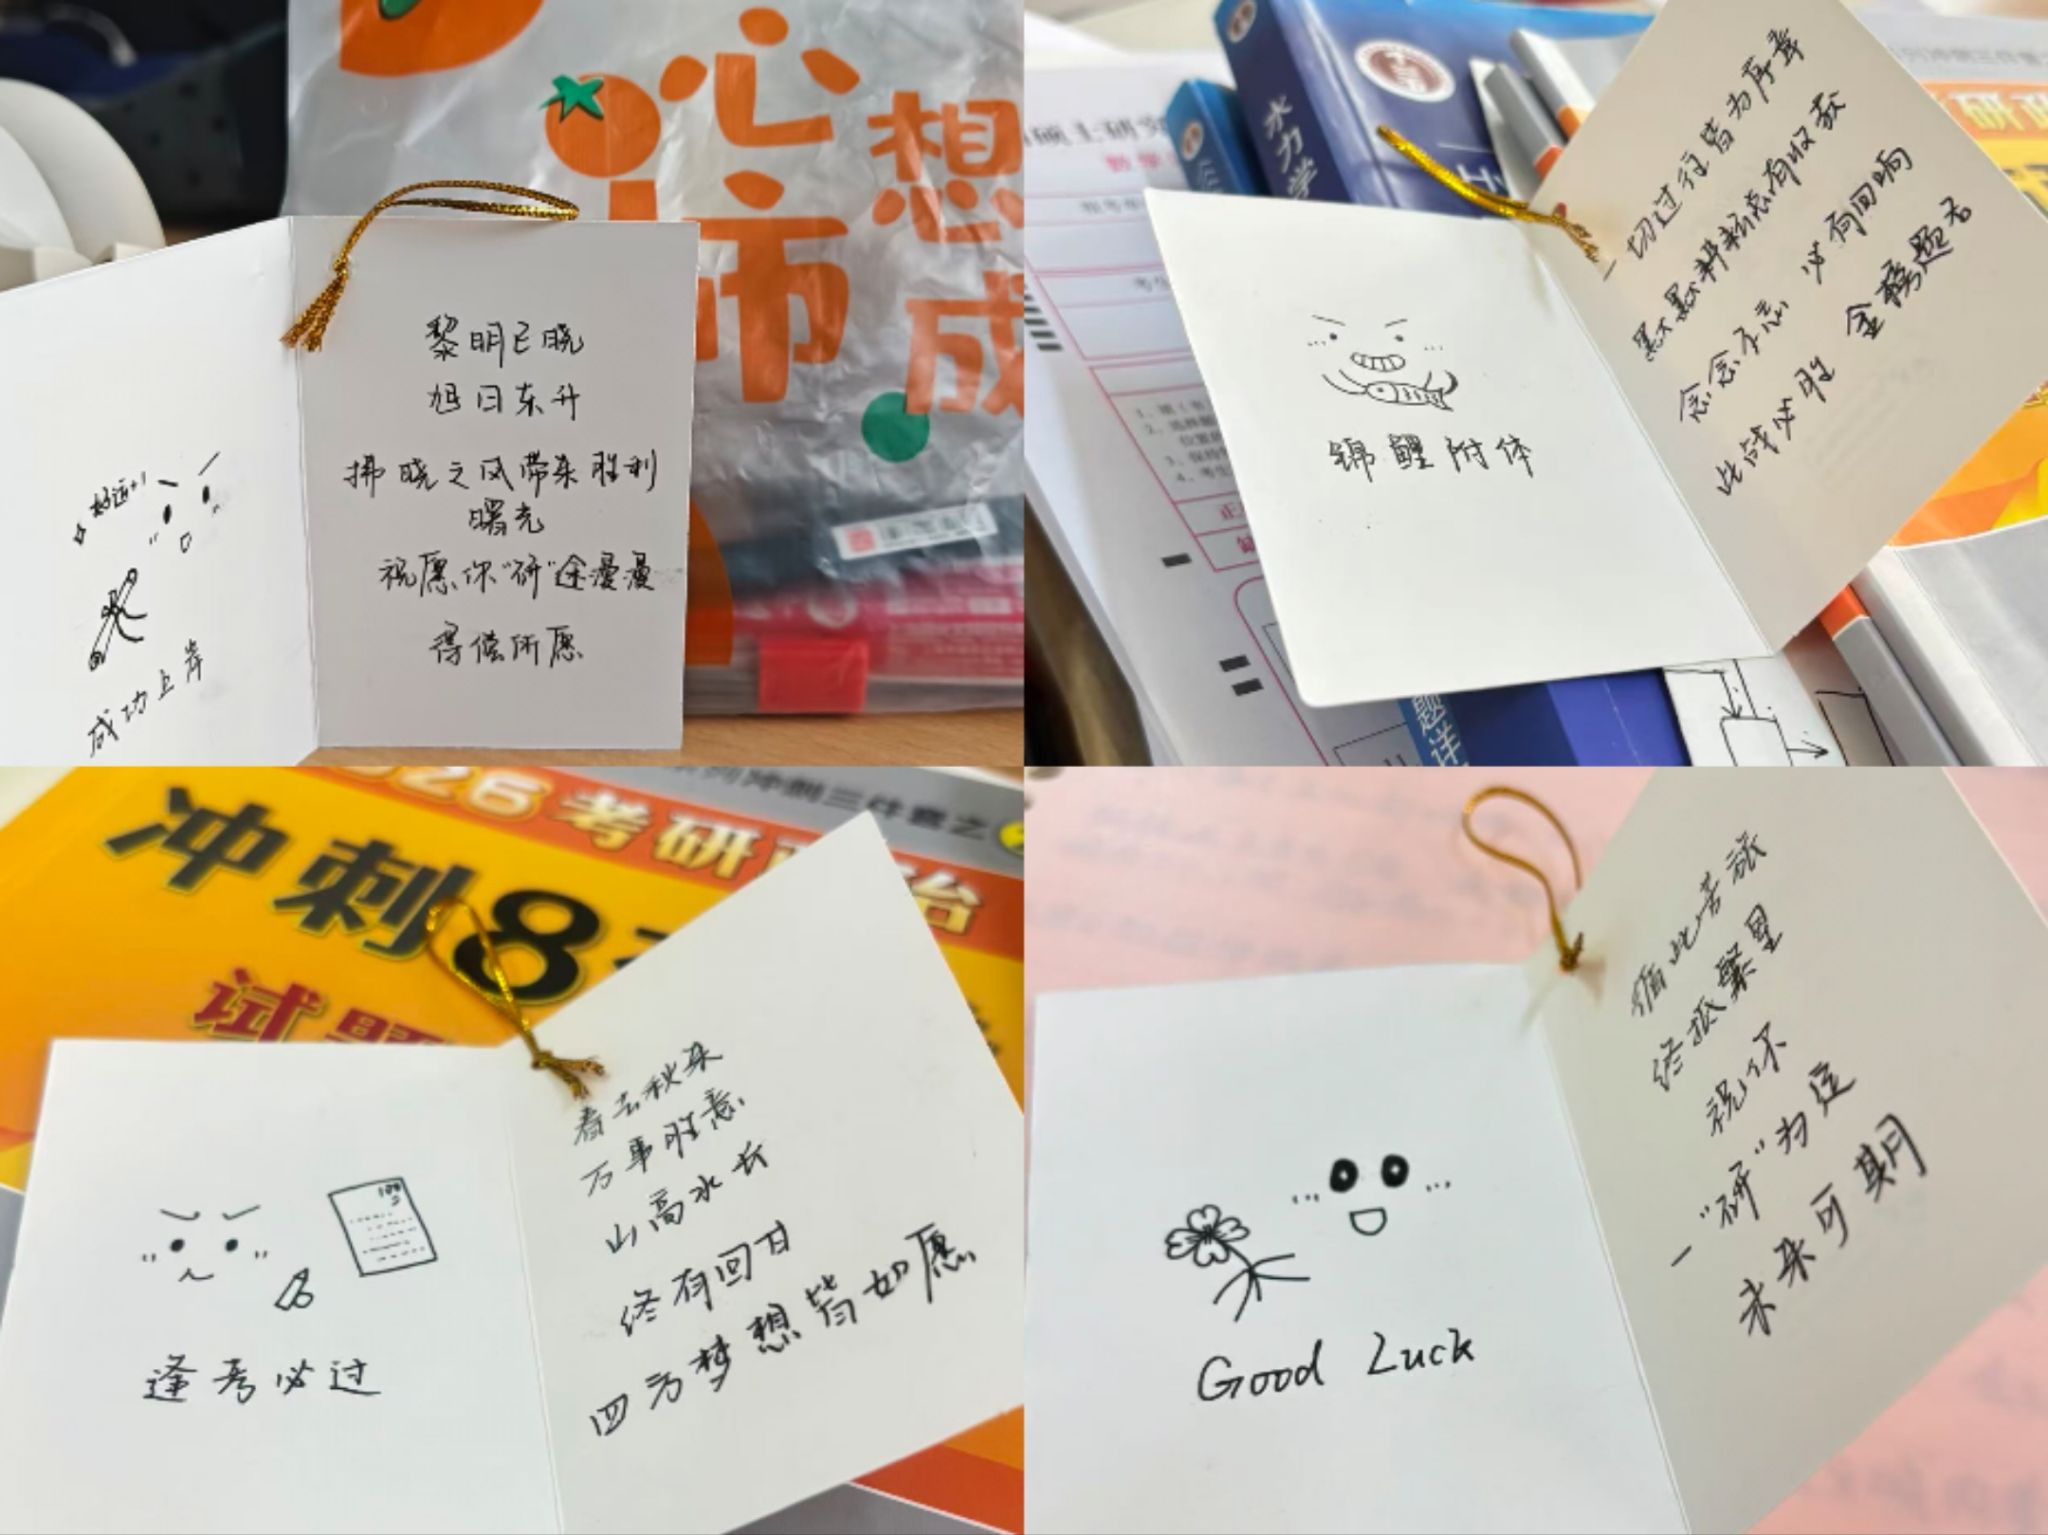 心想
柿成
好运+1
成功上岸
黎明已晓
旭日东升
拂晓之风带来胜利
曙光
祝愿你“研”途漫漫
得偿所愿
水力学
硕士研究
锦鲤附体
一切过往皆为序章
默默耕耘总有收获
念念不忘 必有回响
此战必胜 金榜题名
题详
026考研
冲刺8
试题
100
逢考必过
春去秋来
万事胜意
山高水长
终有回甘
四方梦想皆如愿
Good Luck
循此苦旅
终抵繁星
祝你
一“研”为定
未来可期